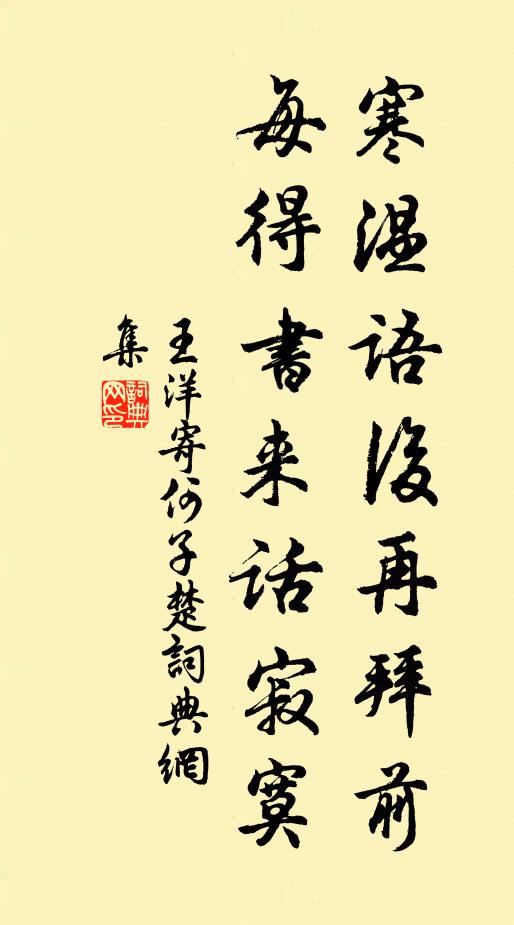 寒温語後再拜前
每得書来話寂寞
王洋寄何子楚詞典網
集
詞典
网印